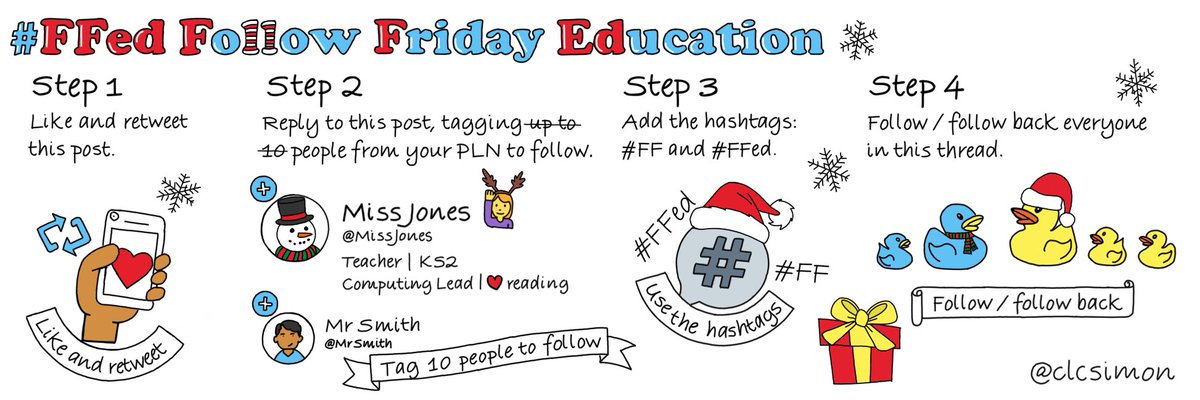 #FFed Follow Friday Education
Step 1
Like and retweet
this post.
Like and retweet
Step 2
Reply to this post, tagging up to
10 people from your PLN to follow.
Miss Jones
@MissJones
Teacher | KS2
Computing Lead | ❤ reading
Mr Smith
@MrSmith
Tag 10 people to follow
Step 3
Add the hashtags:
#FF and #FFed.
#FFed
#
#FF
Use the hashtags
Step 4
Follow / follow back everyone
in this thread.
Follow / follow back
@clcsimon